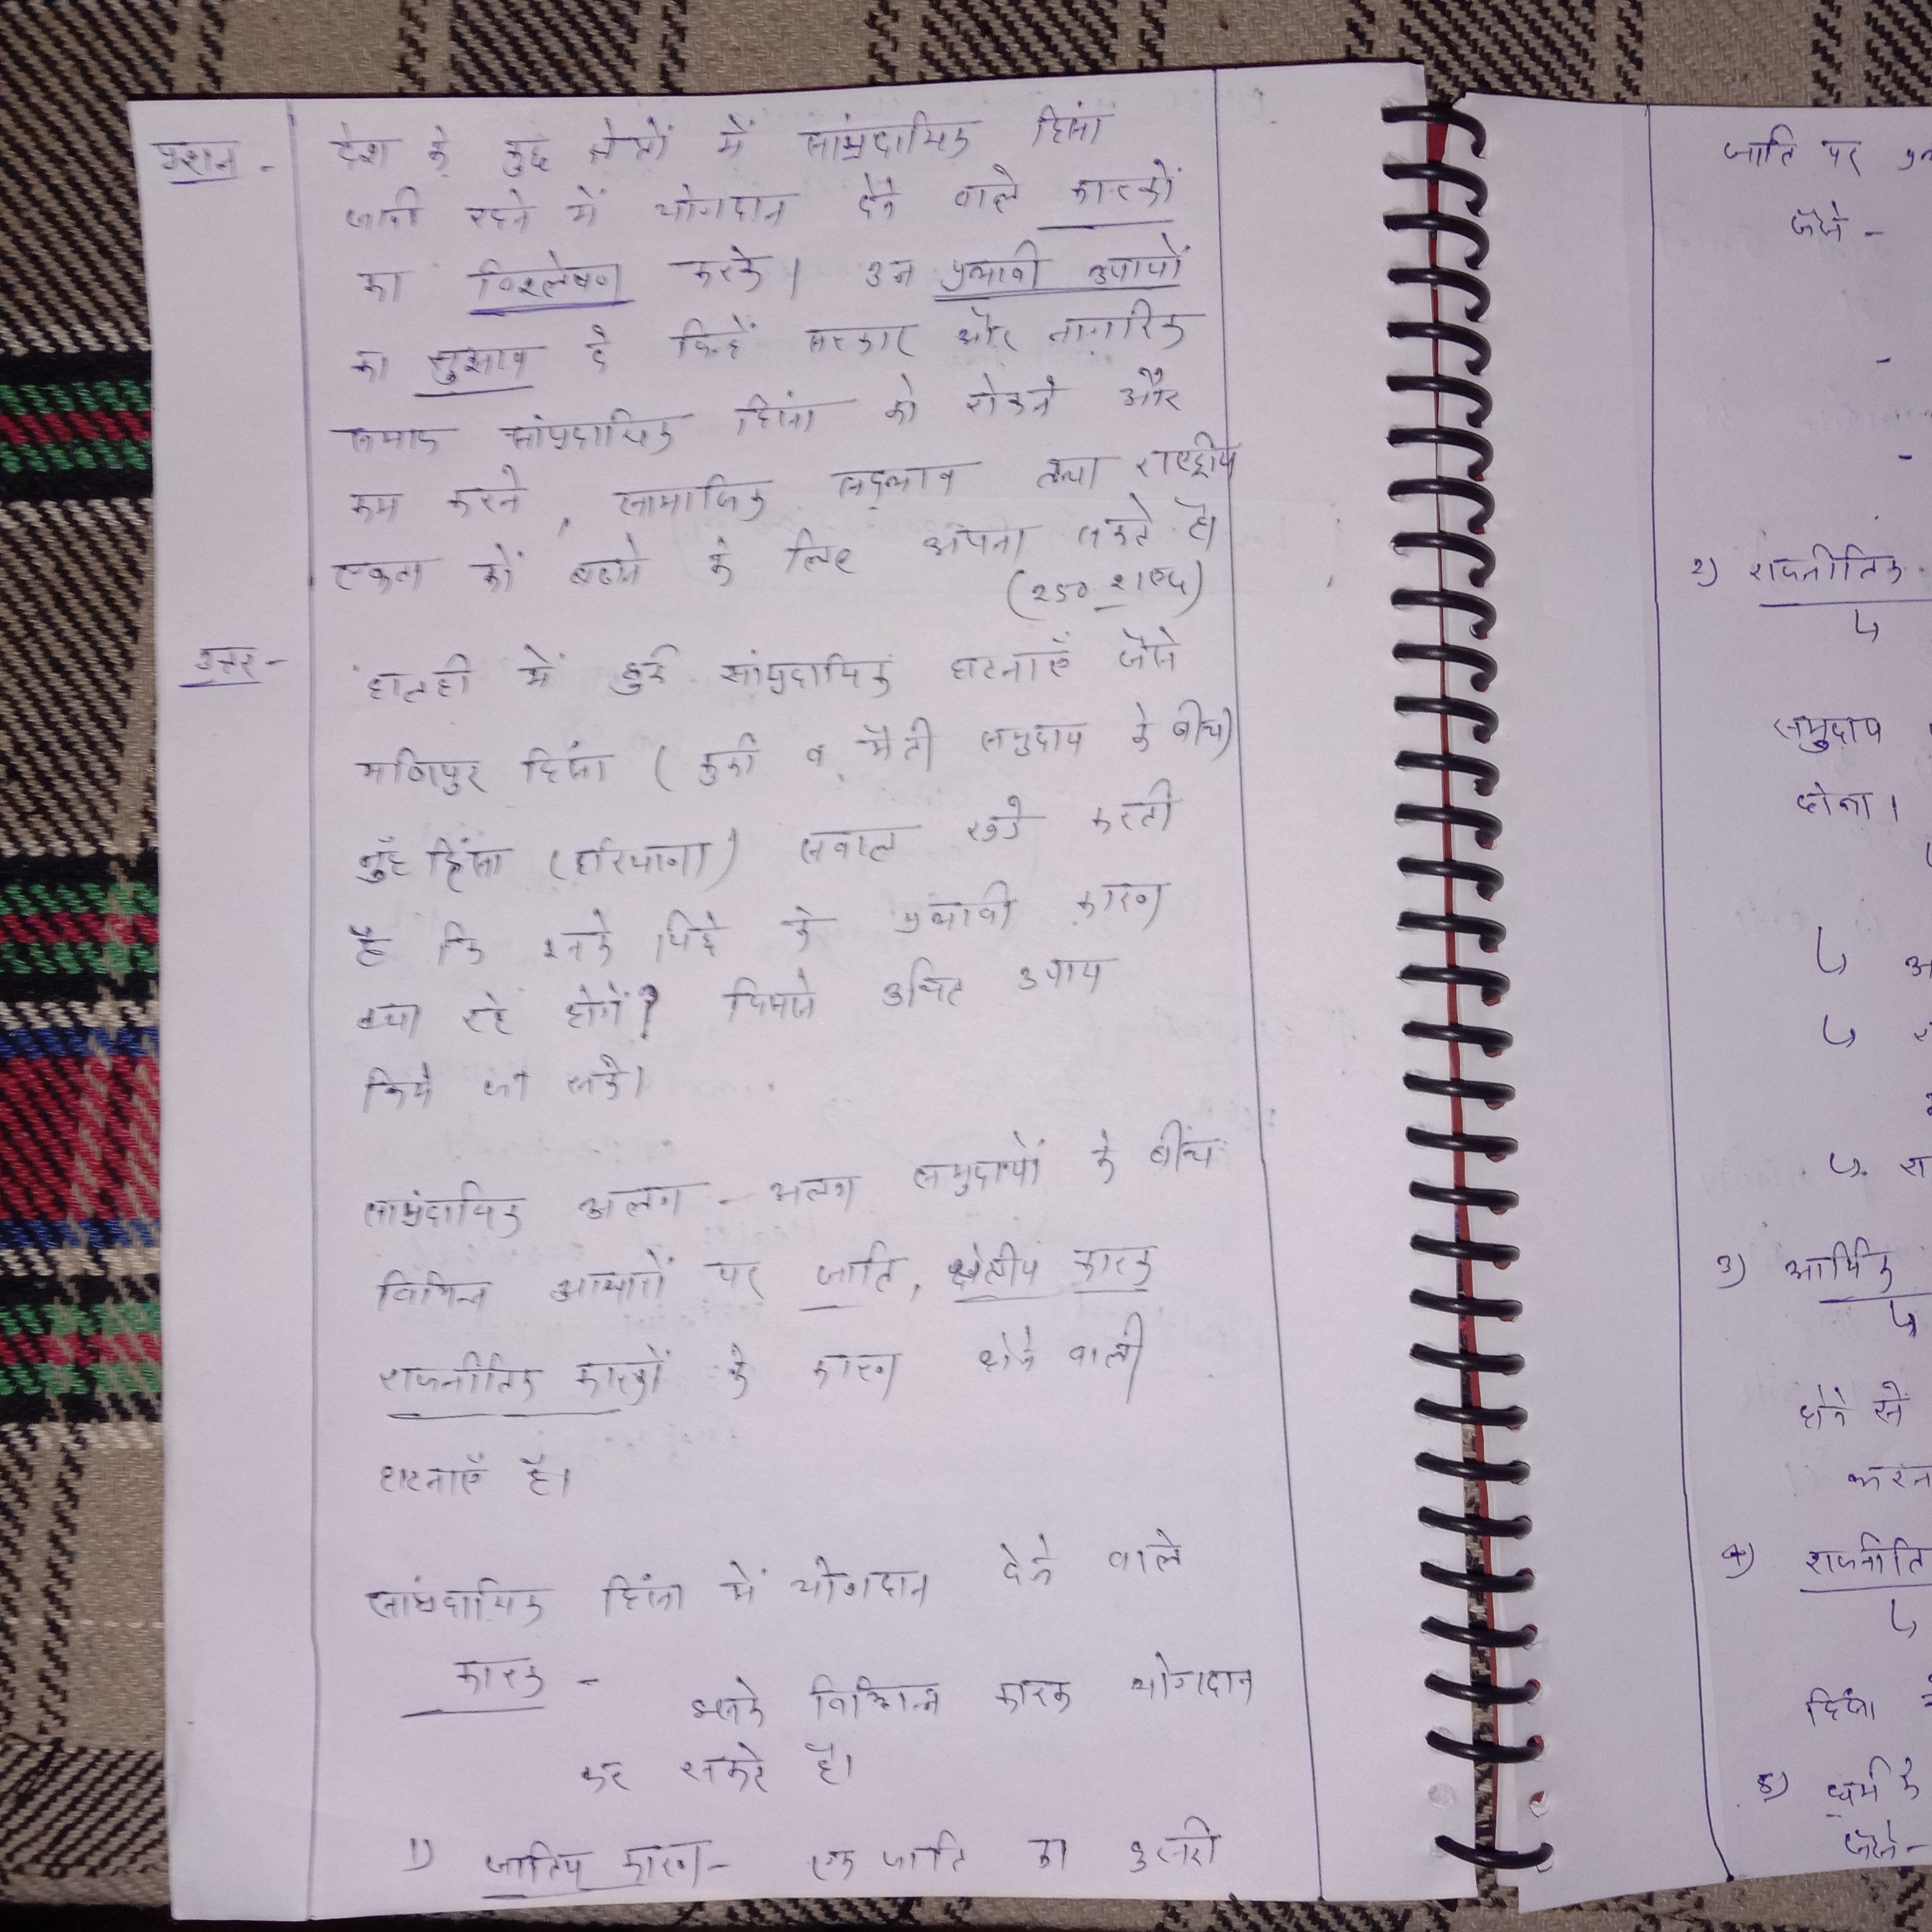 प्रशन - देश के कुछ क्षेत्रों में सांप्रदायिक हिंसा
जारी रहने में योगदान देने वाले कारकों
का विश्लेषण करके। उन प्रभावी उपायों
का सुझाव दे जिन्हें सरकार और नागरिक
समाज सांप्रदायिक हिंसा को रोकने और
कम करने, सामाजिक सद्भाव तथा राष्ट्रीय
एकता को बढाने के लिए अपना सकते है।
(250 शब्द)
उत्तर - हालही में हुई सांप्रदायिक घटनाएँ जैसे
मणिपुर हिंसा (कुकी व मैती समुदाय के बीच)
नुँह हिंसा (हरियाणा) सवाल खडे करती
है कि इनके पिछे के प्रभावी कारण
क्या रहे होगें? जिससे उचित उपाय
किये जा सके।
साप्रंदायिक अलग - अलग समुदायों के बीच
विभिन्न आधारों पर जाति, क्षेत्रीय कारक
राजनीतिक कारकों के कारण होने वाली
घटनाएँ है।
सांप्रदायिक हिंसा में योगदान देने वाले
कारक -
इसके विभिन्न कारक योगदान
कर सकते है।
1) जातिय कारण - एक जाति का दुसरी
जाति पर
जैसे -
-
-
2) राजनीतिक
समुदाय
होना।
3) आर्थिक
होने से
करना
4) राजनीति
हिंसा
5) धर्म के
जैसे -